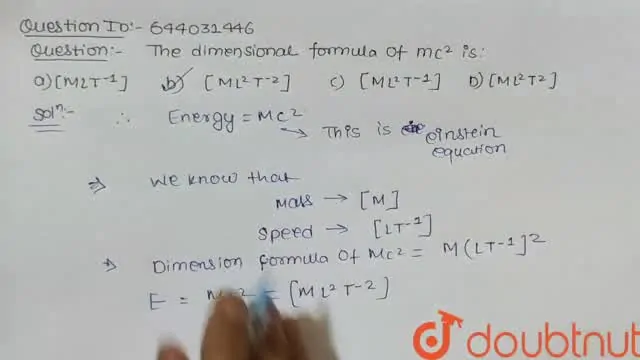 Question ID:- 644031446
Question:- The dimensional formula of mc² is:
a) [MLT⁻¹] b) [ML²T⁻²] c) [ML²T⁻¹] D) [ML²T²]
Solⁿ:- ∴ Energy = MC²
→ This is einstein
equation
⇒ we know that
Mass → [M]
Speed → [LT⁻¹]
⇒ Dimension formula of MC² = M(LT⁻¹]²
E = = [ML²T⁻²]
doubtnut